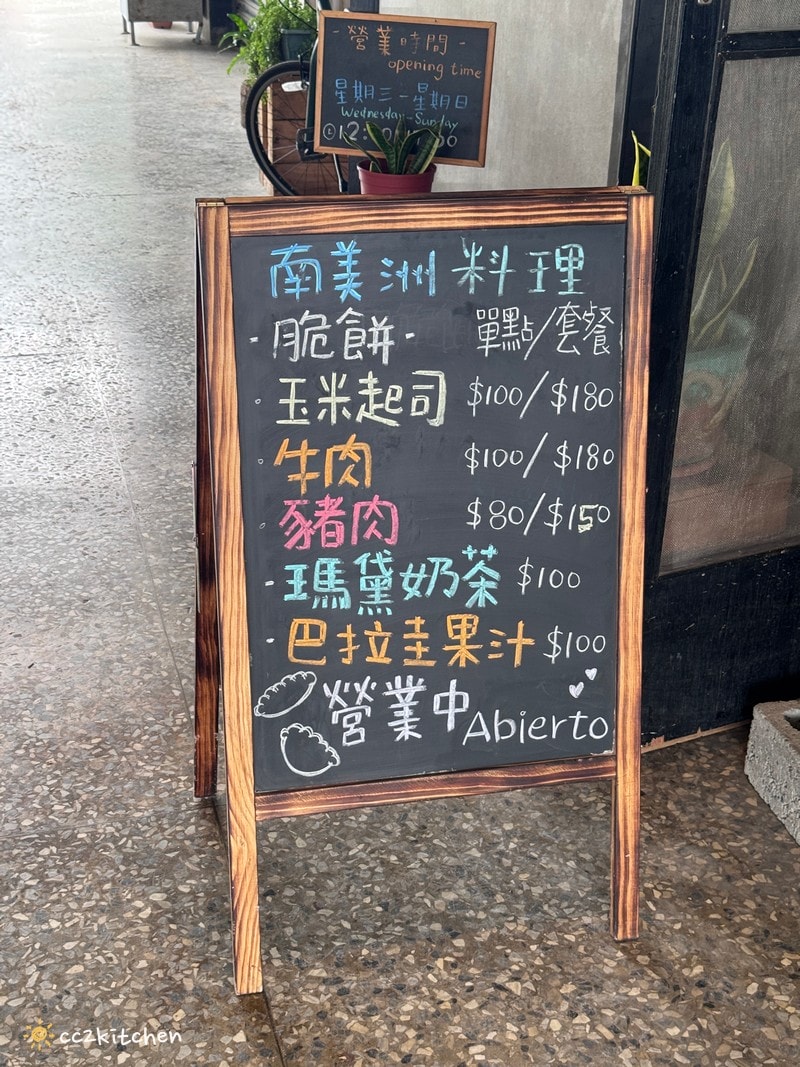 - 營業時間 -
opening time
星期三 - 星期日
Wednesday-Sunday
南美洲料理
- 脆餅 - 單點/套餐
玉米起司 $100/$180
牛肉 $100/$180
豬肉 $80/$150
- 瑪黛奶茶 $100
· 巴拉圭果汁 $100
營業中 Abierto
cc2kitchen